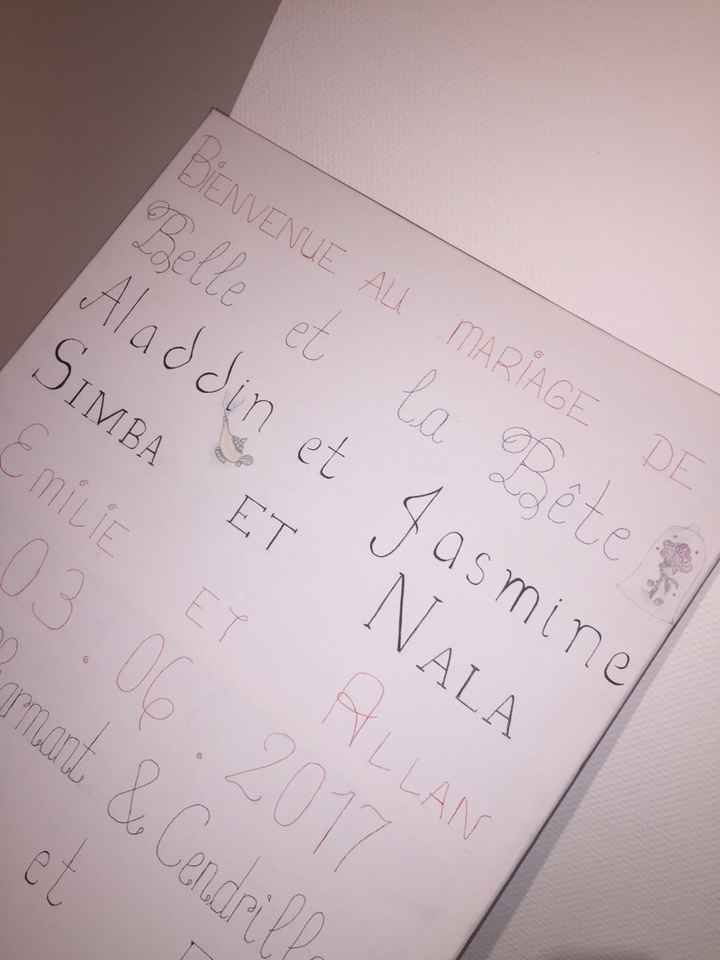 BIENVENUE AU MARIAGE DE
Belle et la Bête
Aladdin et Jasmine
SIMBA ET NALA
EMILIE ET ALLAN
03.06.2017
& 
et